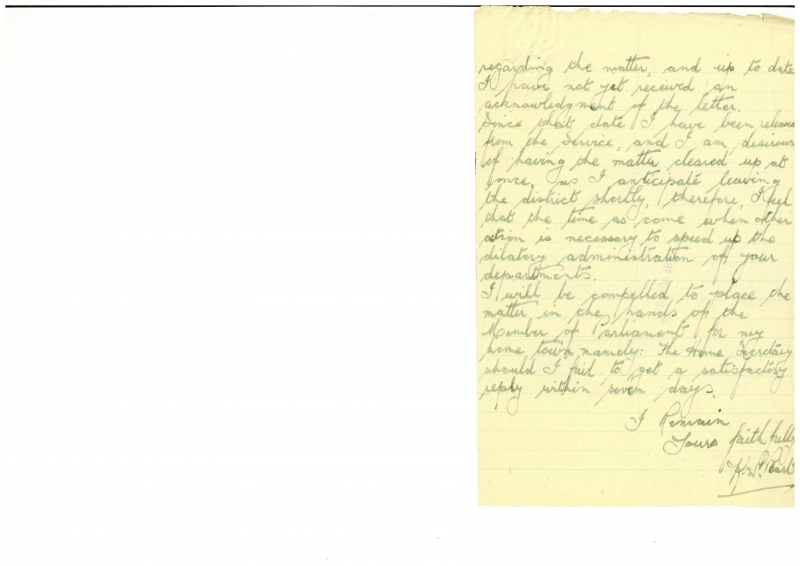 regarding the matter, and up to date
I have not yet received an
acknowledgment of the letter.
Since that date I have been release
from the Service, and I am desirous
of having the matter cleared up at
once, as I anticipate leaving
the district shortly, therefore, I feel
that the time as come when other
action is necessary to speed up the
dilatory administration of your
departments.
I will be compelled to place the
matter in the hands of the
Member of Parliament for my
home town namely: The Home Secretary
should I fail to get a satisfactory
reply within seven days.
I Remain
Yours faithfully